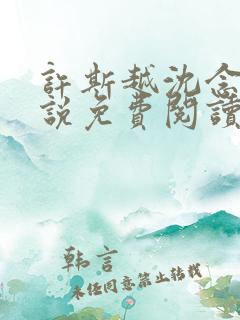 許斯越沈念
說免費閱讀
韩言
未任同意禁止转载